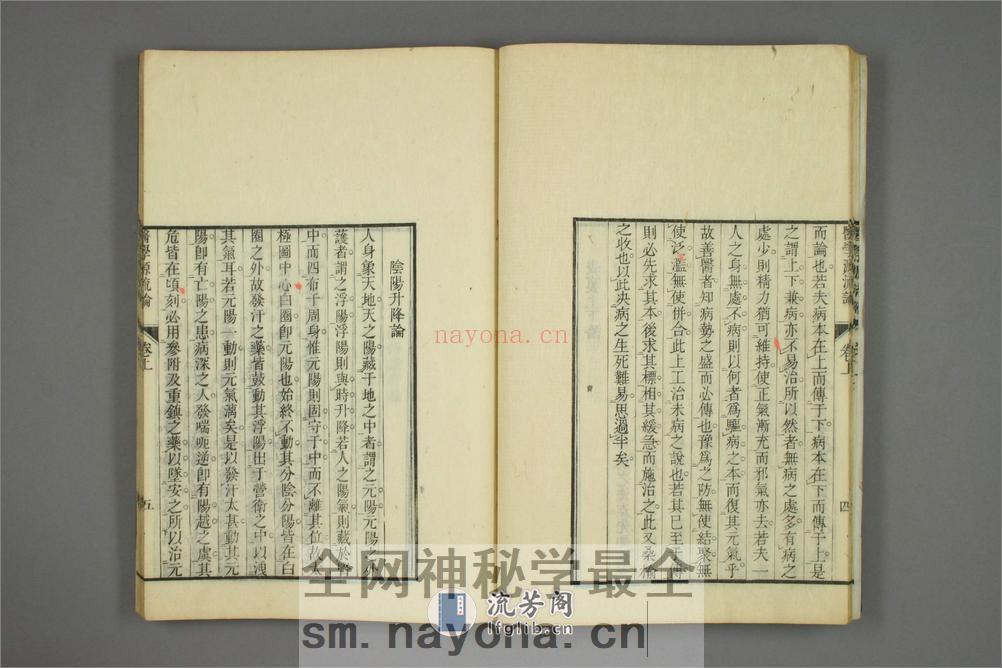 醫學源流論
卷上
四
而論也若夫病本在上而傳于下病本在下而傳于上是
之謂上下兼病亦不易治所以然者無病之處多有病之
處少則精力猶可維持使正氣漸充而邪氣亦去若夫一
人之身無處不病則以何者爲驅病之本而復其元氣乎
故善醫者知病勢之盛而必傳也豫爲之防無使結聚無
使泛濫無使併合此上工治未病之說也若其已至于傳
則必先求其本後求其標相其緩急而施治之此又桑榆
之收也以此決病之生死難易思過半矣
陰陽升降論
人身象天地天之陽藏于地之中者謂之元陽元陽之外
護者謂之浮陽浮陽則與時升降若人之陽氣則藏於腎
中而四布于周身惟元陽則固守于中而不離其位故太
極圖中心白圈即元陽也始終不動其分陰分陽皆在白
圈之外故發汗之藥皆鼓動其浮陽出于營衛之中以洩
其氣耳若元陽一動則元氣漓矣是以發汗太甚動其元
陽即有亡陽之患病深之人發喘呃逆即有陽越之虞其
危皆在頃刻必用參附及重鎮之藥以墜安之所以治元
醫學源流論
卷上
五
nayona.cn
全网神秘学最全
流芳阁
lfglib.cn
sm.nayona.cn